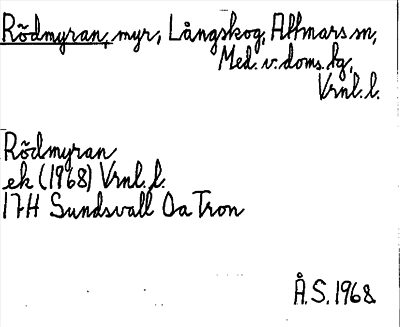 Rödmyran, myr, Långskog, Attmars sn,
Med. v. doms. hg,
Vrnl. l.
Rödmyran
ek (1968) Vrnl. l.
17H Sundsvall Oa Tron
Å.S. 1968